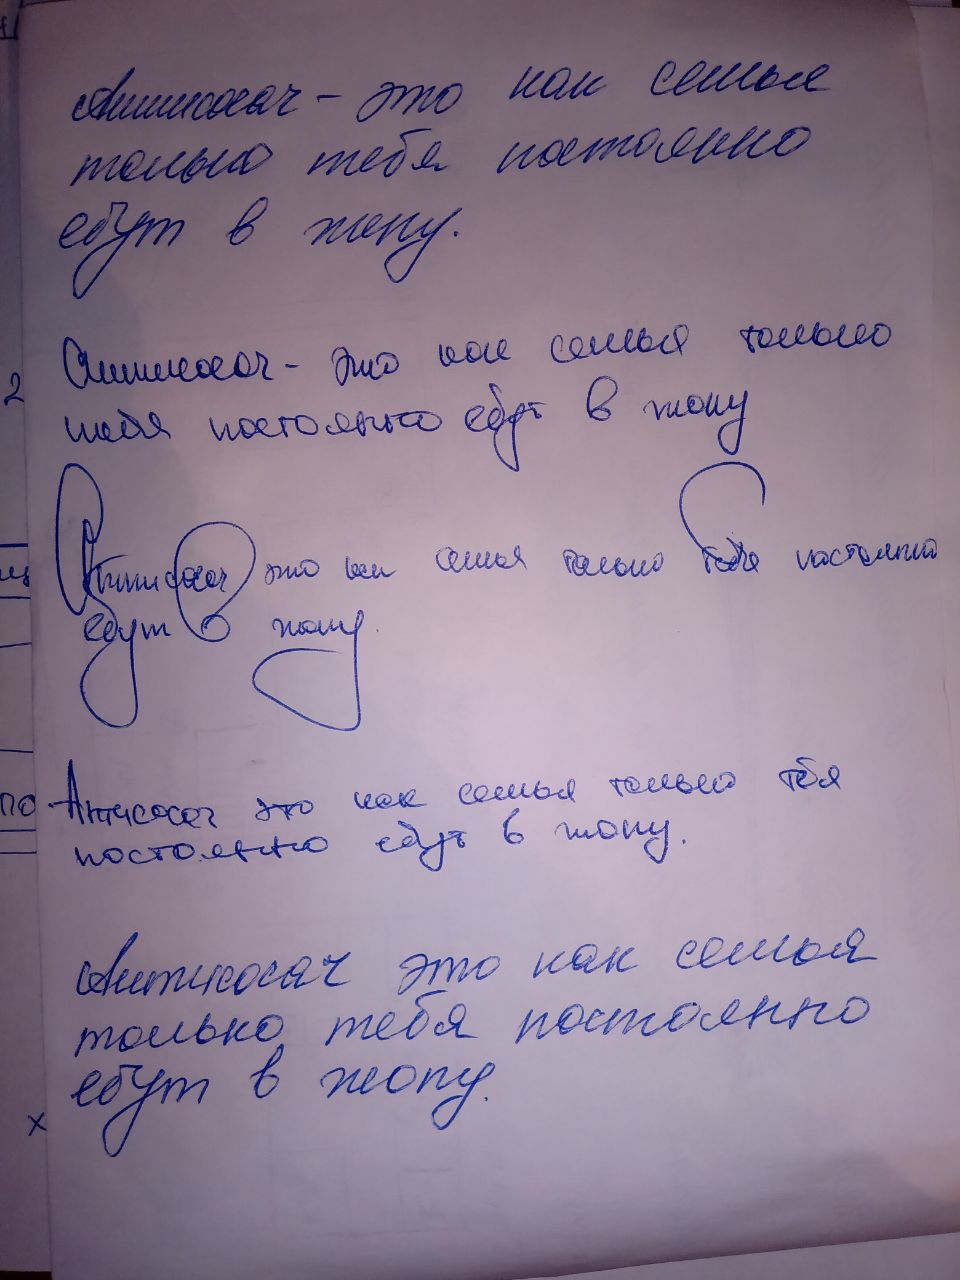 Антисосач - это как семья
только тебя постоянно
ебут в жопу.
Антисосач - это как семья только
тебя постоянно ебут в жопу
2
Антисосач это как семья только тебя постоянно
ебут в жопу.
Антисосач это как семья только тебя
по
постоянно ебут в жопу.
Антисосач это как семья
только тебя постоянно
ебут в жопу.
х